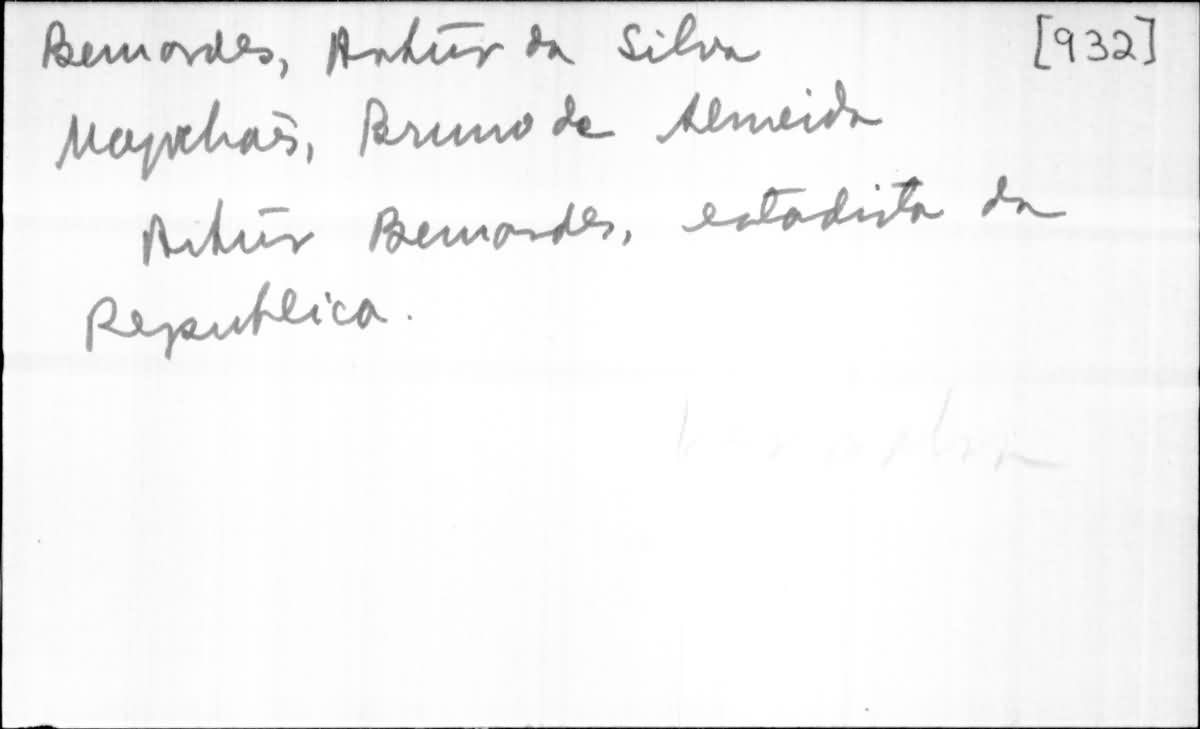 Bernardes, Artur da Silva [932]
Magalhães, Bruno de Almeida
Artur Bernardes, estadista da
Republica.